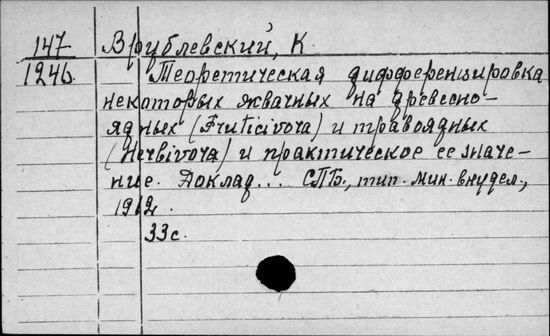 147 Врублевский, К.
1246. Теоретическая дифференцировка
некоторых жвачных на древесно-
ядных (Fruticivora) и травоядных
(Herbivora) и практическое ее значе-
ние. Доклад... СПБ., тип. мин. внудел.,
1912.
33 с.